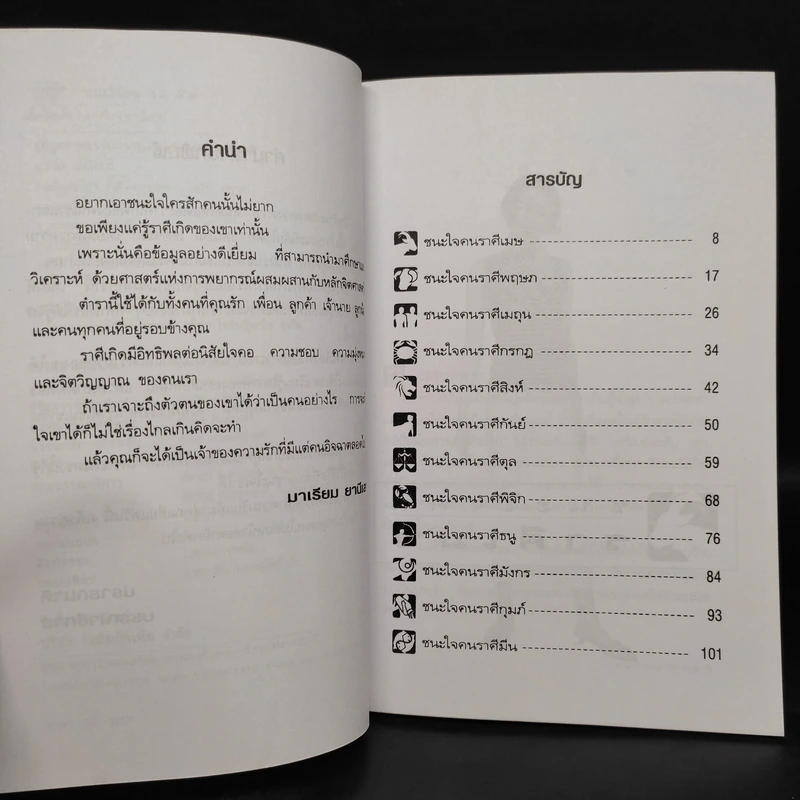 คำนำ
อยากเอาชนะใจใครสักคนนั้นไม่ยาก
ขอเพียงแค่รู้ราศีเกิดของเขาเท่านั้น
เพราะนั่นคือข้อมูลอย่างดีเยี่ยม ที่สามารถนำมาศึกษา
วิเคราะห์ ด้วยศาสตร์แห่งการพยากรณ์ผสมผสานกับหลักจิตศาสตร์
ตำรานี้ใช้ได้กับทั้งคนที่คุณรัก เพื่อน ลูกค้า เจ้านาย
และคนทุกคนที่อยู่รอบข้างคุณ
ราศีเกิดมีอิทธิพลต่อนิสัยใจคอ ความชอบ
และจิตวิญญาณ ของคนเรา
ถ้าเราเจาะถึงตัวตนของเขาได้ว่าเป็นคนอย่างไร
ใจเขาได้ก็ไม่ใช่เรื่องไกลเกินคิดจะทำ
แล้วคุณก็จะได้เป็นเจ้าของความรักที่มีแต่คนอิจฉา
มาเรียม
สารบัญ
ชนะใจคนราศีเมษ 8
ชนะใจคนราศีพฤษภ 17
ชนะใจคนราศีเมถุน 26
ชนะใจคนราศีกรกฎ 34
ชนะใจคนราศีสิงห์ 42
ชนะใจคนราศีกันย์ 50
ชนะใจคนราศีตุล 59
ชนะใจคนราศีพิจิก 68
ชนะใจคนราศีธนู 76
ชนะใจคนราศีมังกร 84
ชนะใจคนราศีกุมภ์ 93
ชนะใจคนราศีมีน 101